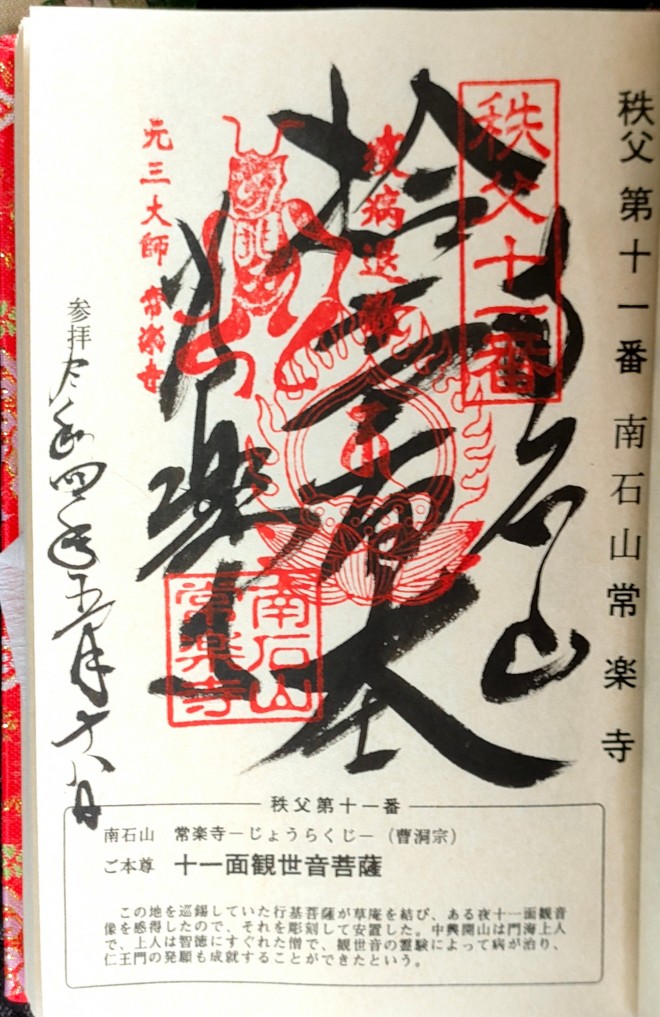 秩父 第十一番 南石山常楽寺
秩父十一番
南石山
疫病退散
拾一面大士
常楽寺
元三大師 常楽寺
南石山
常楽寺
参拝 令和四年五月十八日
秩父第十一番
南石山 常楽寺－じょうらくじ－（曹洞宗）
ご本尊 十一面観世音菩薩
この地を巡錫していた行基菩薩が草庵を結び、ある夜十一面観音
像を感得したので、それを彫刻して安置した。中興開山は門海上人
で、上人は智徳にすぐれた僧で、観世音の霊験によって病が治り、
仁王門の発願も成就することができたという。